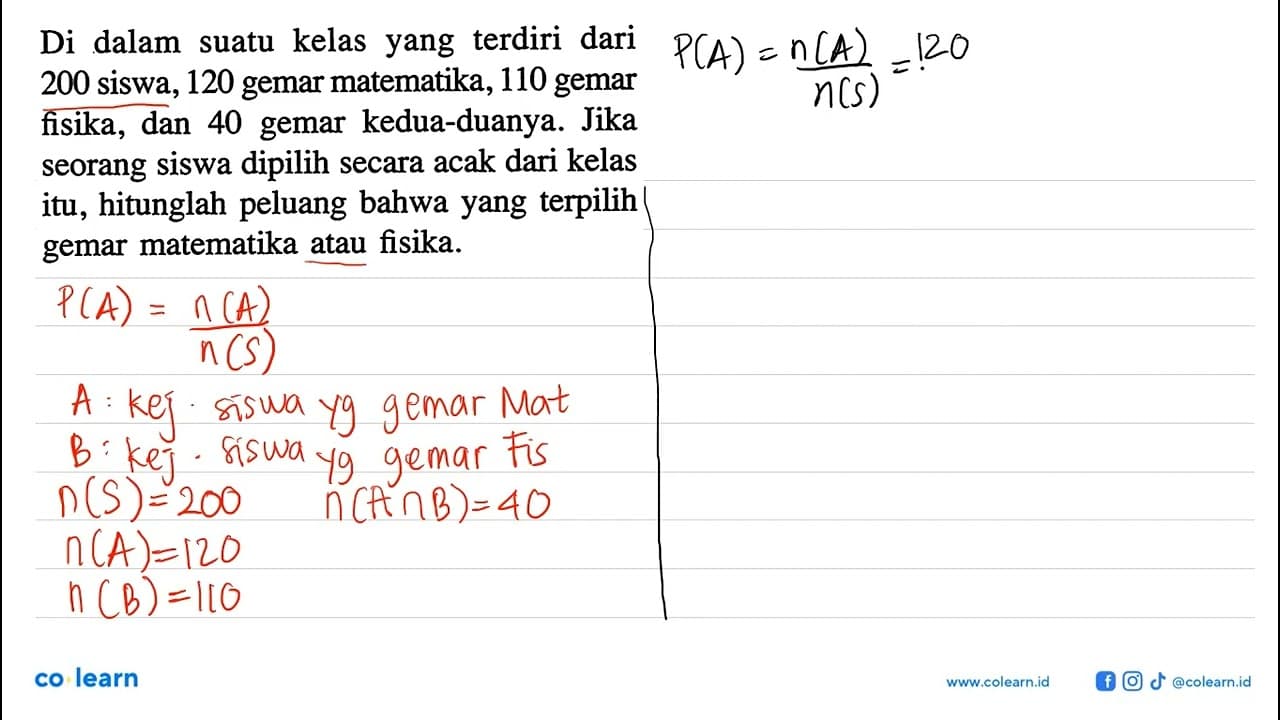 Di dalam suatu kelas yang terdiri dari
200 siswa, 120 gemar matematika, 110 gemar
fisika, dan 40 gemar kedua-duanya. Jika
seorang siswa dipilih secara acak dari kelas
itu, hitunglah peluang bahwa yang terpilih
gemar matematika atau fisika.
P(A) = n(A)
n(S)
A : kej. siswa yg gemar Mat
B : kej. siswa yg gemar Fis
n(S) = 200 n(A∩B) = 40
n(A) = 120
n(B) = 110
P(A) = n(A) = 120
n(S)
co learn
www.colearn.id @colearn.id